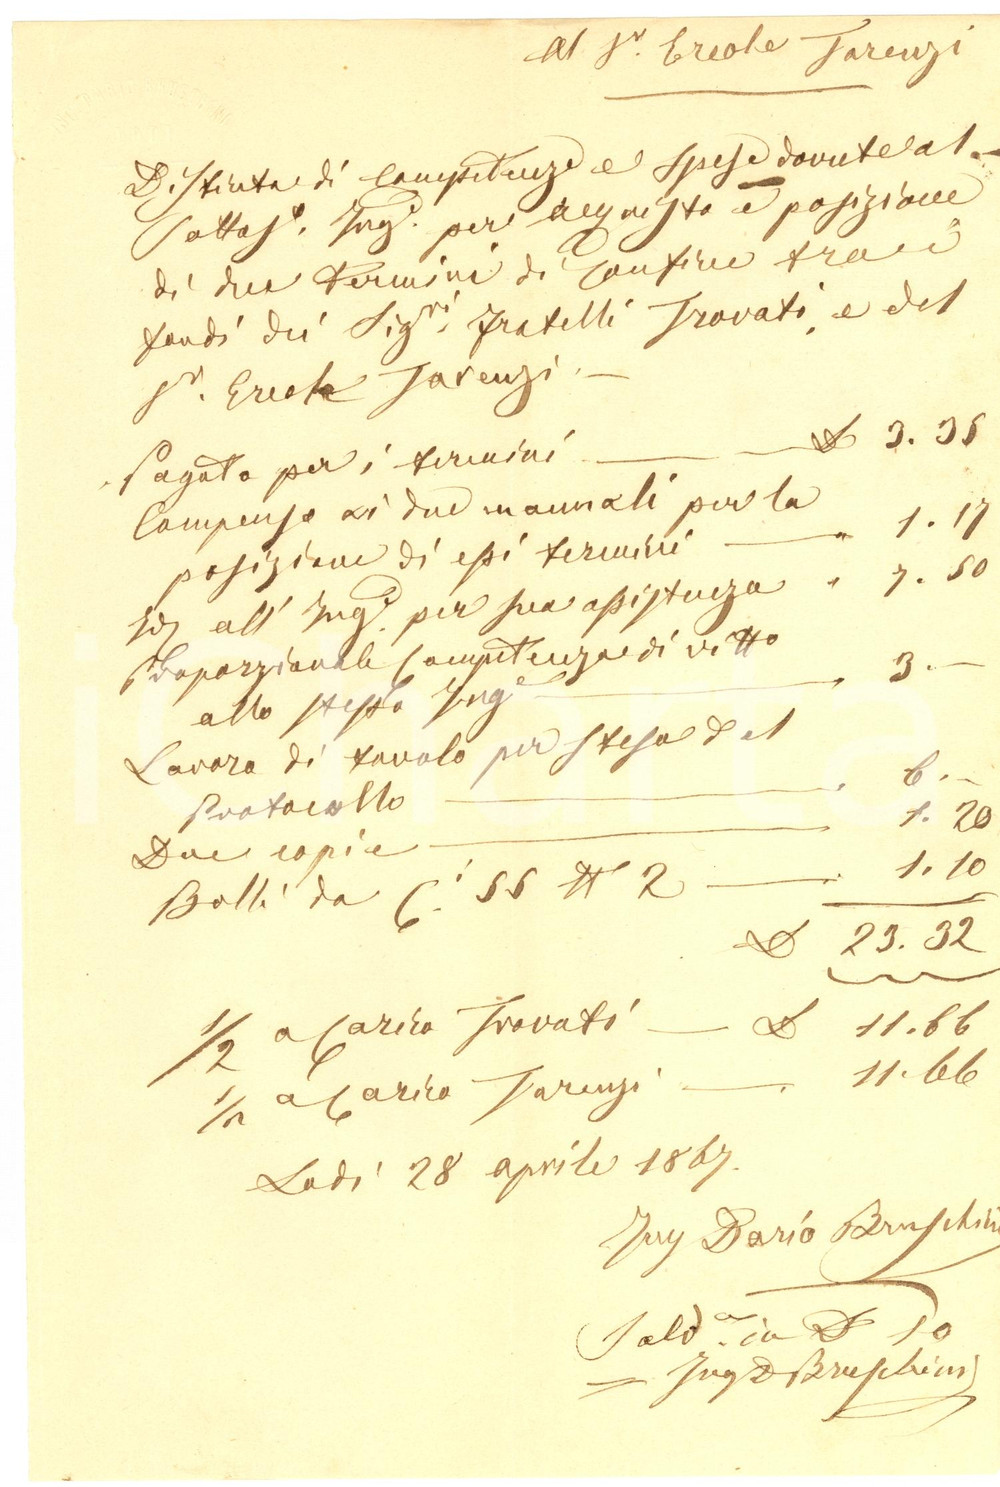 Al Sr. Ercole Tarenzi
Distinta di Competenze e Spese dovute al
Sottost. Ingre. per acquisto e posizione
di due termini di Confine tra i
fondi dei Sigri. Fratelli Trovati, e del
Sr. Ercole Tarenzi. —
Pagato per i termini — £ 3. 35
Compenso ai due manuali per la
posizione di essi termini — " 1. 17
Id all' Ingre. per sua assistenza " 7. 50
Proporzionale Competenza di vitto
allo stesso Inge — " 3. —
Lavoro di tavolo per stesa del
Protocollo — " 6. —
Due copie — " 1. 20
Bolli da C.i 55 N 2 — " 1. 10
£ 23. 32
1/2 a Carico Trovati — £ 11. 66
1/2 a Carico Tarenzi — " 11. 66
Lodi 28 aprile 1867.
Ing Dario Bruschini
Saldo. in £ 10
Ing D Bruschini